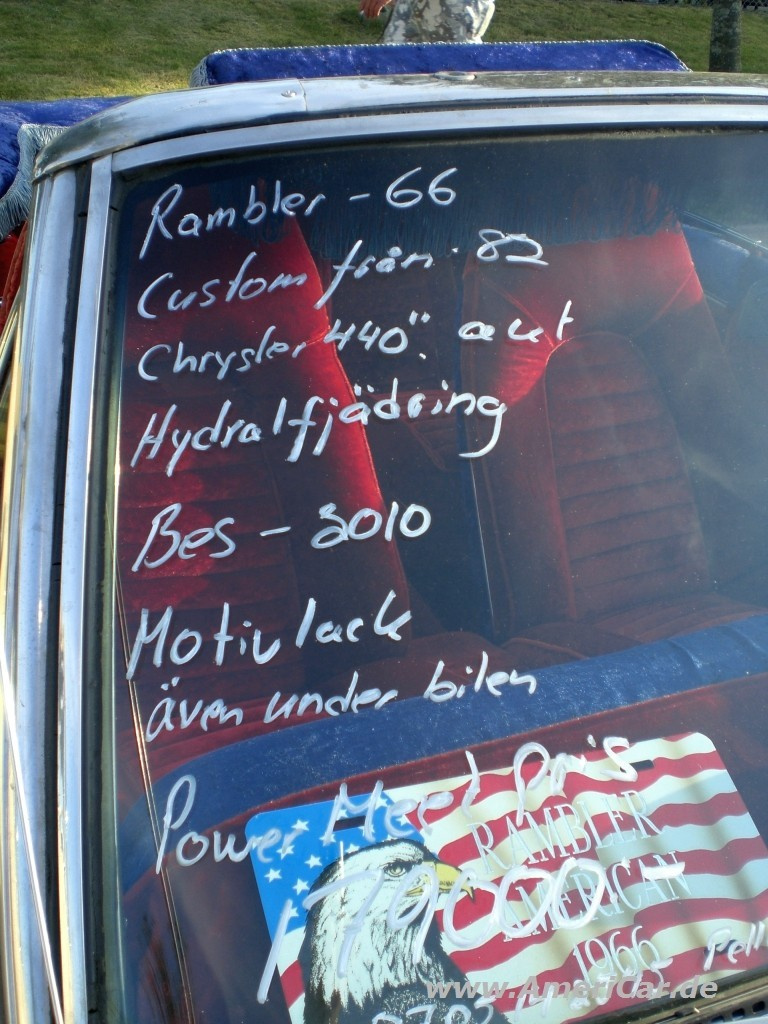 Rambler - 66
Custom från 82
Chrysler 440" aut
Hydralfjädring
Bes - 2010
Motivlack
även under bilen
Power Meet Pris
179000:-
RAMBLER
AMERICAN
1966
www.AmeriCar.de